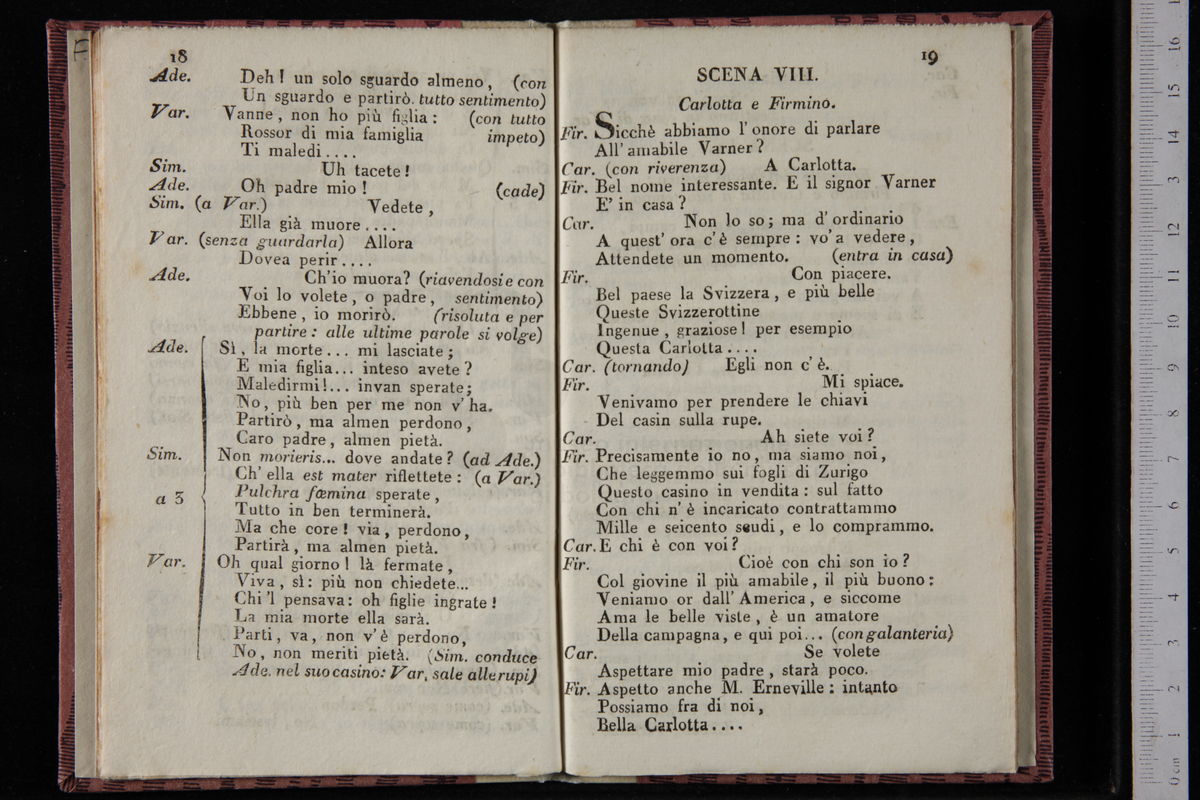 18
Ade. Deh! un solo sguardo almeno, (con
Un sguardo e partirò. tutto sentimento)
Var. Vanne, non ho più figlia: (con tutto
Rossor di mia famiglia impeto)
Ti maledi....
Sim. Uh tacete!
Ade. Oh padre mio! (cade)
Sim. (a Var.) Vedete,
Ella già muore....
Var. (senza guardarla) Allora
Dovea perir....
Ade. Ch'io muora? (riavendosi e con
Voi lo volete, o padre, sentimento)
Ebbene, io morirò. (risoluta e per
partire: alle ultime parole si volge)
Ade. Sì, la morte... mi lasciate;
E mia figlia... inteso avete?
Maledirmi!... invan sperate;
No, più ben per me non v'ha.
Partirò, ma almen perdono,
Caro padre, almen pietà.
Sim. Non morieris... dove andate? (ad Ade.)
Ch'ella est mater riflettete: (a Var.)
a 3 Pulchra fœmina sperate,
Tutto in ben terminerà.
Ma che core! via, perdono,
Partirà, ma almen pietà.
Var. Oh qual giorno! là fermate,
Viva, sì: più non chiedete...
Chi 'l pensava: oh figlie ingrate!
La mia morte ella sarà.
Parti, va, non v'è perdono,
No, non meriti pietà. (Sim. conduce
Ade. nel suo casino: Var, sale alle rupi)
19
SCENA VIII.
Carlotta e Firmino.
Fir. Sicchè abbiamo l'onore di parlare
All'amabile Varner?
Car. (con riverenza) A Carlotta.
Fir. Bel nome interessante. E il signor Varner
E' in casa?
Car. Non lo so; ma d'ordinario
A quest'ora c'è sempre: vo'a vedere,
Attendete un momento. (entra in casa)
Fir. Con piacere.
Bel paese la Svizzera, e più belle
Queste Svizzerottine
Ingenue, graziose! per esempio
Questa Carlotta....
Car. (tornando) Egli non c'è.
Fir. Mi spiace.
Venivamo per prendere le chiavi
Del casin sulla rupe.
Car. Ah siete voi?
Fir. Precisamente io no, ma siamo noi,
Che leggemmo sui fogli di Zurigo
Questo casino in vendita: sul fatto
Con chi n'è incaricato contrattammo
Mille e seicento scudi, e lo comprammo.
Car. E chi è con voi?
Fir. Cioè con chi son io?
Col giovine il più amabile, il più buono:
Veniamo or dall'America, e siccome
Ama le belle viste, è un amatore
Della campagna, e qui poi... (con galanteria)
Car. Se volete
Aspettare mio padre, starà poco.
Fir. Aspetto anche M. Erneville: intanto
Possiamo fra di noi,
Bella Carlotta....
0 cm 1 2 3 4 5 6 7 8 9 10 11 12 13 14 15 16